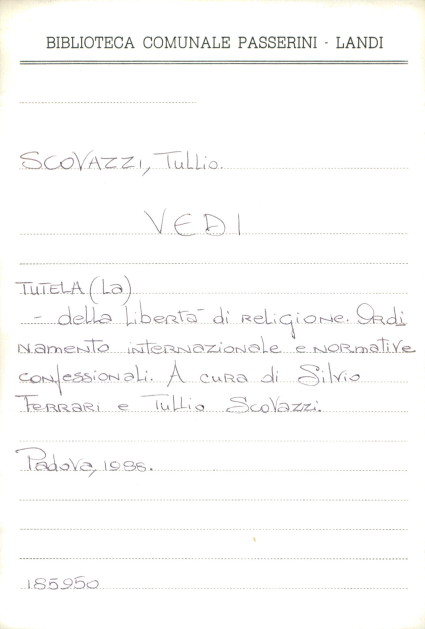 BIBLIOTECA COMUNALE PASSERINI - LANDI
SCOVAZZI, Tullio.
VEDI
TUTELA (La)
- della libertà di religione. Ordi
namento internazionale e normative
confessionali. A cura di Silvio
Ferrari e Tullio Scovazzi.
Padova, 1988.
185950